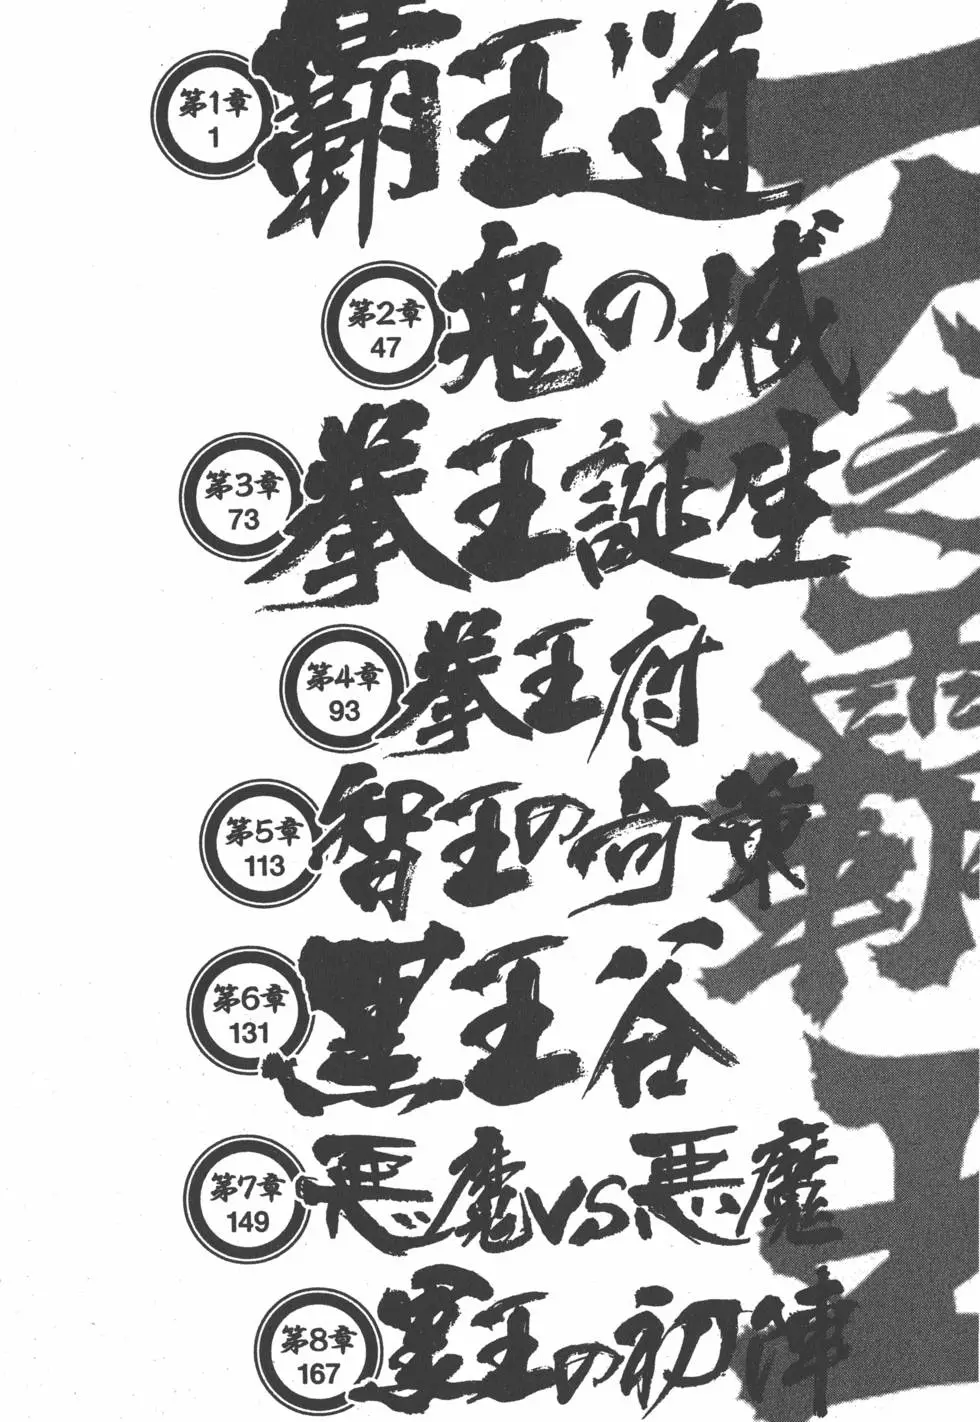 第1章
1
覇王道
第2章
47
鬼の城
第3章
73
拳王誕生
第4章
93
拳王府
第5章
113
智王の奇策
第6章
131
黒王谷
第7章
149
悪魔VS悪魔
第8章
167
黒王の初陣
之
覇
王